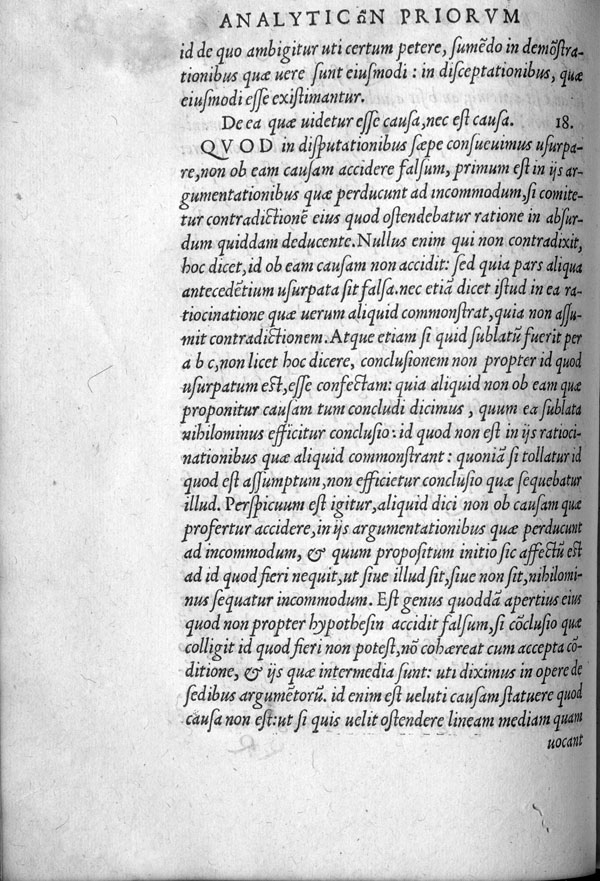 ANALYTICῶN PRIORVM
id de quo ambigitur uti certum petere, sumēdo in demōstra-
tionibus quæ uere sunt eiusmodi : in disceptationibus, quæ
eiusmodi esse existimantur.
De ea quæ uidetur esse causa, nec est causa. 18.
QVOD in disputationibus sæpe consueuimus usurpa-
re, non ob eam causam accidere falsum, primum est in ijs ar-
gumentationibus quæ perducunt ad incommodum, si comite-
tur contradictionē eius quod ostendebatur ratione in absur-
dum quiddam deducente. Nullus enim qui non contradixit,
hoc dicet, id ob eam causam non accidit: sed quia pars aliqua
antecedētium usurpata sit falsa. nec etiā dicet istud in ea ra-
tiocinatione quæ uerum aliquid commonstrat, quia non assu-
mit contradictionem. Atque etiam si quid sublatū fuerit per
a b c, non licet hoc dicere, conclusionem non propter id quod
usurpatum est, esse confectam: quia aliquid non ob eam quæ
proponitur causam tum concludi dicimus, quum ea sublata
nihilominus efficitur conclusio: id quod non est in ijs ratioci-
nationibus quæ aliquid commonstrant : quoniā si tollatur id
quod est assumptum, non efficietur conclusio quæ sequebatur
illud. Perspicuum est igitur, aliquid dici non ob causam quæ
profertur accidere, in ijs argumentationibus quæ perducunt
ad incommodum, & quum propositum initio sic affectū est
ad id quod fieri nequit, ut siue illud sit, siue non sit, nihilomi-
nus sequatur incommodum. Est genus quoddā apertius eius
quod non propter hypothesin accidit falsum, si cōclusio quæ
colligit id quod fieri non potest, nō cohæreat cum accepta cō-
ditione, & ijs quæ intermedia sunt: uti diximus in opere de
sedibus argumētorū. id enim est ueluti causam statuere quod
causa non est: ut si quis uelit ostendere lineam mediam quam
uocant